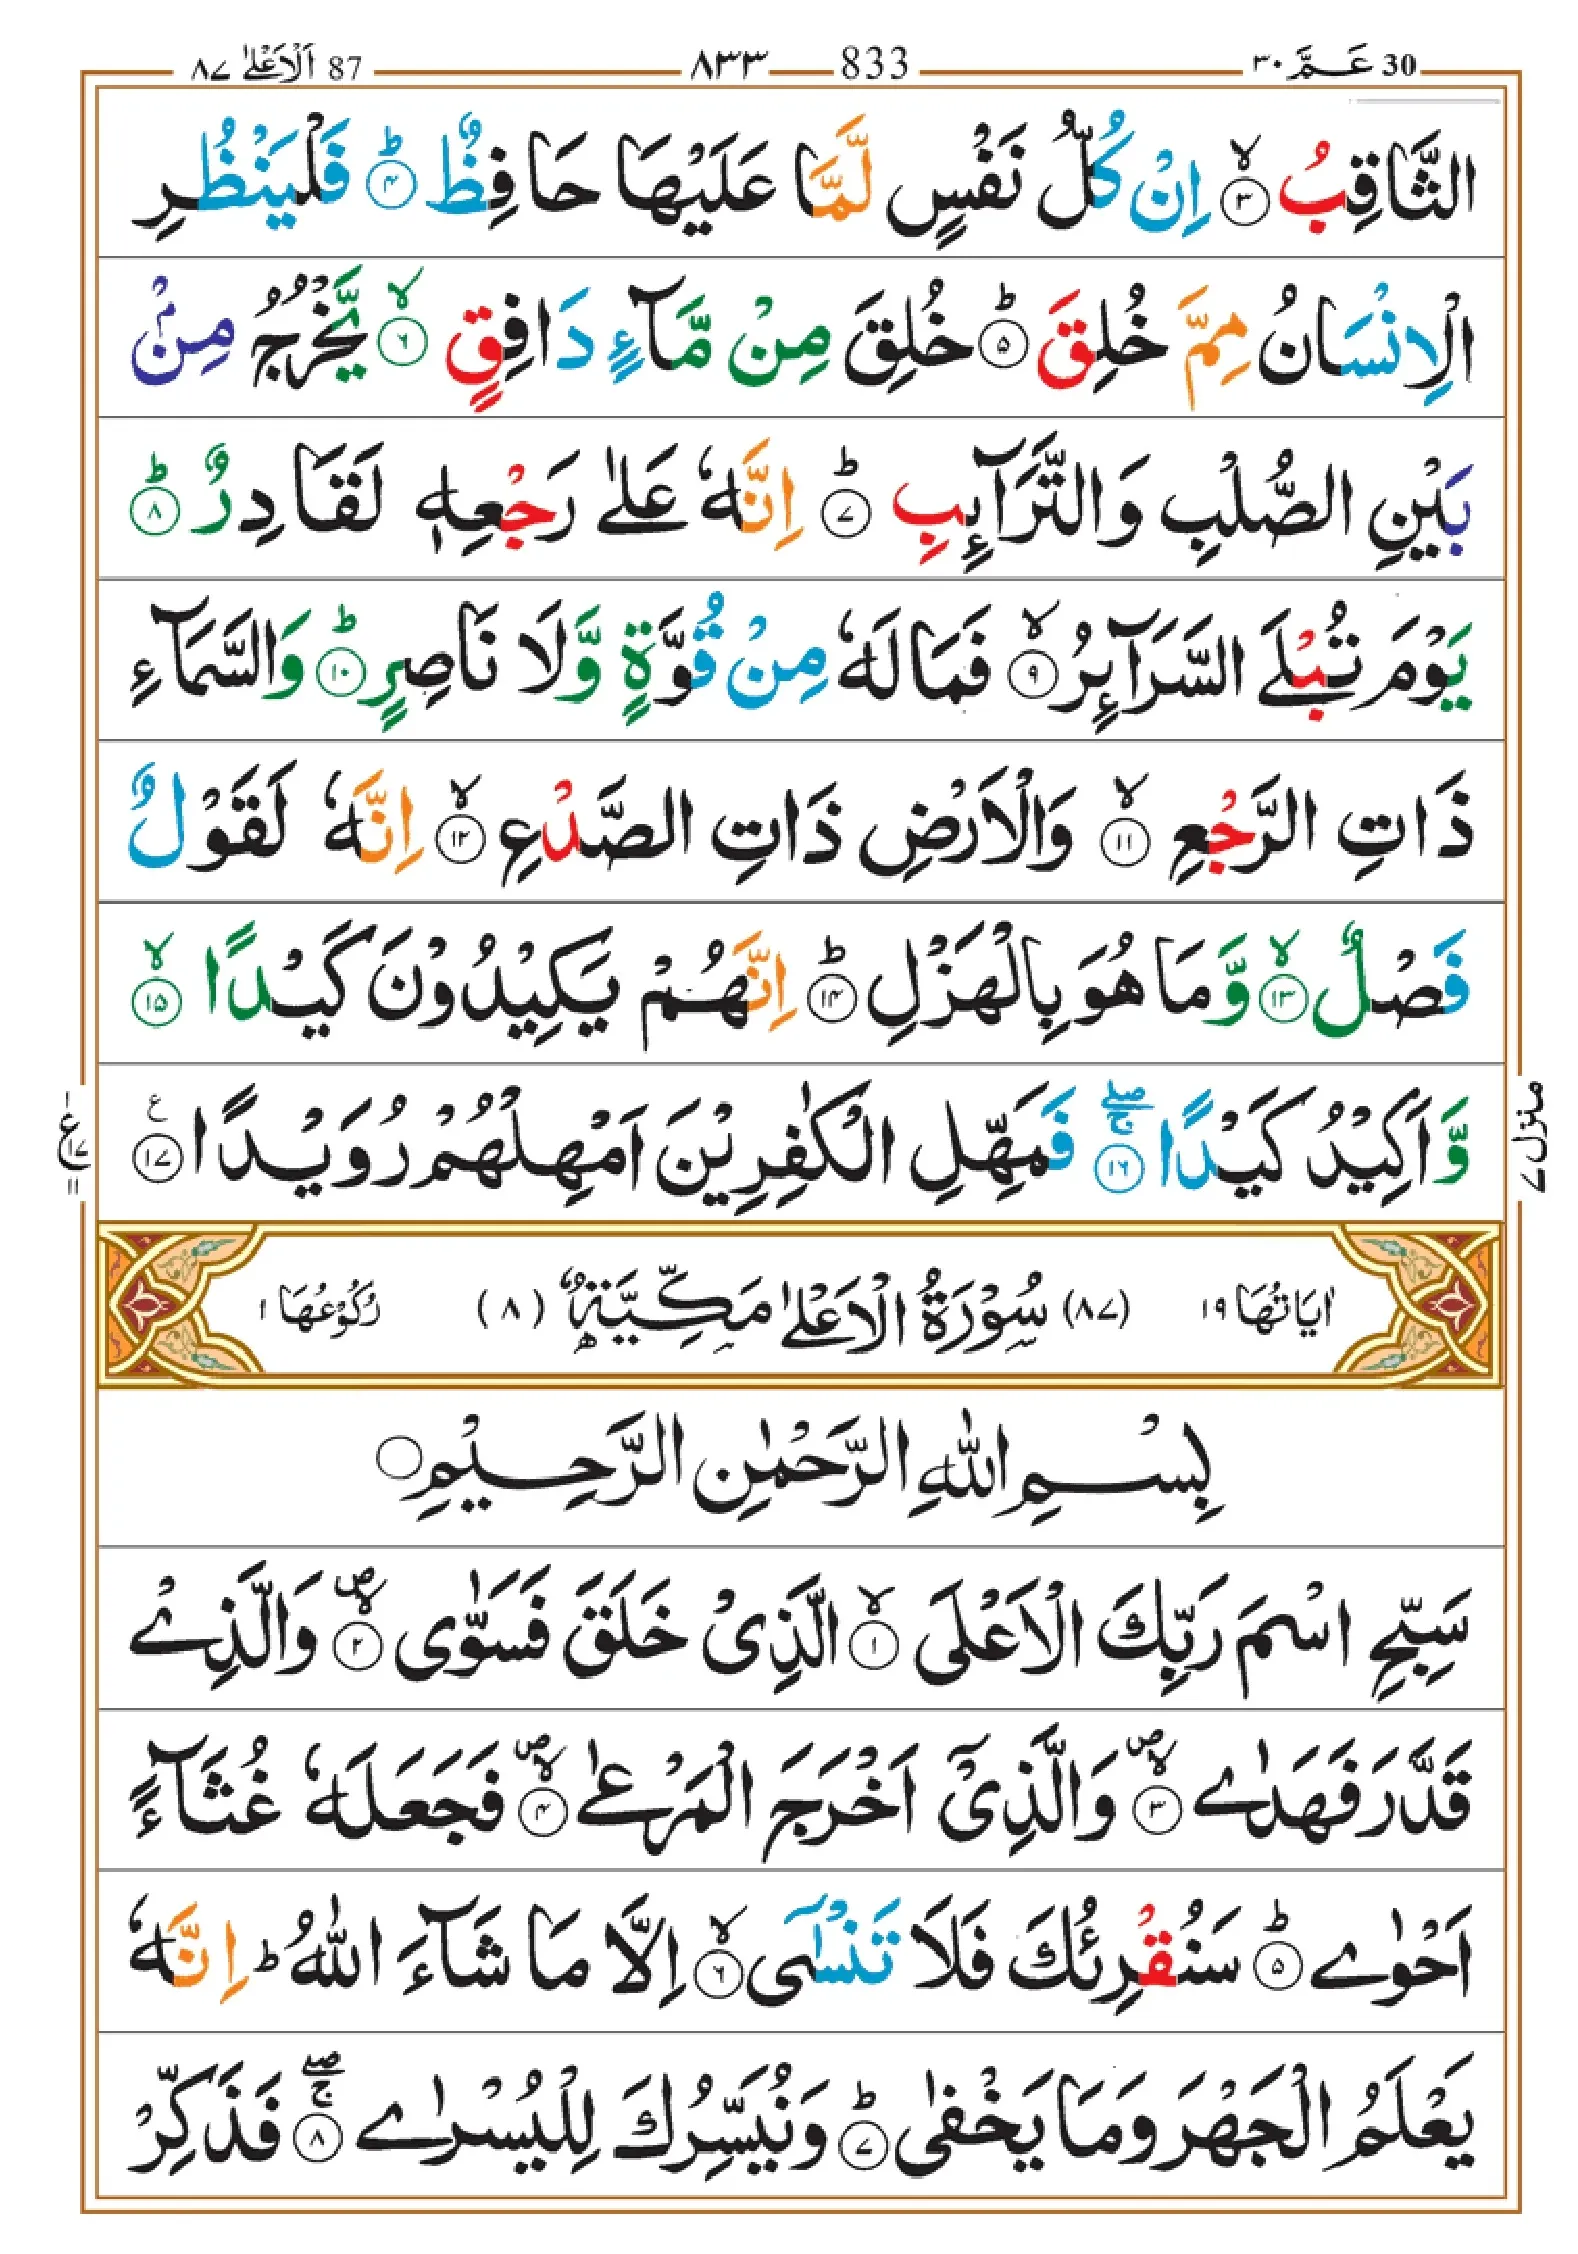 30 عَـمَّ ٣٠
833 ٨٣٣
87 اَلْاَعْلٰی ٨٧
الثَّاقِبُ ۙ﴿٣﴾ اِنْ كُلُّ نَفْسٍ لَّمَّا عَلَيْهَا حَافِظٌ ؕ﴿٤﴾ فَلْيَنْظُرِ
الْاِنْسَانُ مِمَّ خُلِقَ ؕ﴿٥﴾ خُلِقَ مِنْ مَّآءٍ دَافِقٍ ۙ﴿٦﴾ يَّخْرُجُ مِنْۢ
بَيْنِ الصُّلْبِ وَالتَّرَآئِبِ ؕ﴿٧﴾ اِنَّهٗ عَلٰى رَجْعِهٖ لَقَادِرٌ ؕ﴿٨﴾
يَوْمَ تُبْلَى السَّرَآئِرُ ۙ﴿٩﴾ فَمَا لَهٗ مِنْ قُوَّةٍ وَّلَا نَاصِرٍ ؕ﴿١٠﴾ وَالسَّمَآءِ
ذَاتِ الرَّجْعِ ۙ﴿١١﴾ وَالْاَرْضِ ذَاتِ الصَّدْعِ ۙ﴿١٢﴾ اِنَّهٗ لَقَوْلٌ
فَصْلٌ ۙ﴿١٣﴾ وَّمَا هُوَ بِالْهَزْلِ ؕ﴿١٤﴾ اِنَّهُمْ يَكِيْدُوْنَ كَيْدًا ۙ﴿١٥﴾
وَّاَكِيْدُ كَيْدًا ۖۚ﴿١٦﴾ فَمَهِّلِ الْكٰفِرِيْنَ اَمْهِلْهُمْ رُوَيْدًا ﴿١٧﴾ ع
منزل ٧
١ ع ١٧ ١١
اٰيَاتُهَا ١٩ (٨٧) سُوْرَةُ الْاَعْلٰى مَكِّيَّةٌ (٨) رُكُوْعُهَا ١
بِسْمِ اللّٰهِ الرَّحْمٰنِ الرَّحِيْمِ ○
سَبِّحِ اسْمَ رَبِّكَ الْاَعْلَى ۙ﴿١﴾ الَّذِىْ خَلَقَ فَسَوّٰى ۪ۙ﴿٢﴾ وَالَّذِىْ
قَدَّرَ فَهَدٰى ۪ۙ﴿٣﴾ وَالَّذِىْۤ اَخْرَجَ الْمَرْعٰى ۪ۙ﴿٤﴾ فَجَعَلَهٗ غُثَآءً
اَحْوٰى ؕ﴿٥﴾ سَنُقْرِئُكَ فَلَا تَنْسٰٓى ۙ﴿٦﴾ اِلَّا مَا شَآءَ اللّٰهُ ؕ اِنَّهٗ
يَعْلَمُ الْجَهْرَ وَمَا يَخْفٰى ؕ﴿٧﴾ وَنُيَسِّرُكَ لِلْيُسْرٰى ۖۚ﴿٨﴾ فَذَكِّرْ